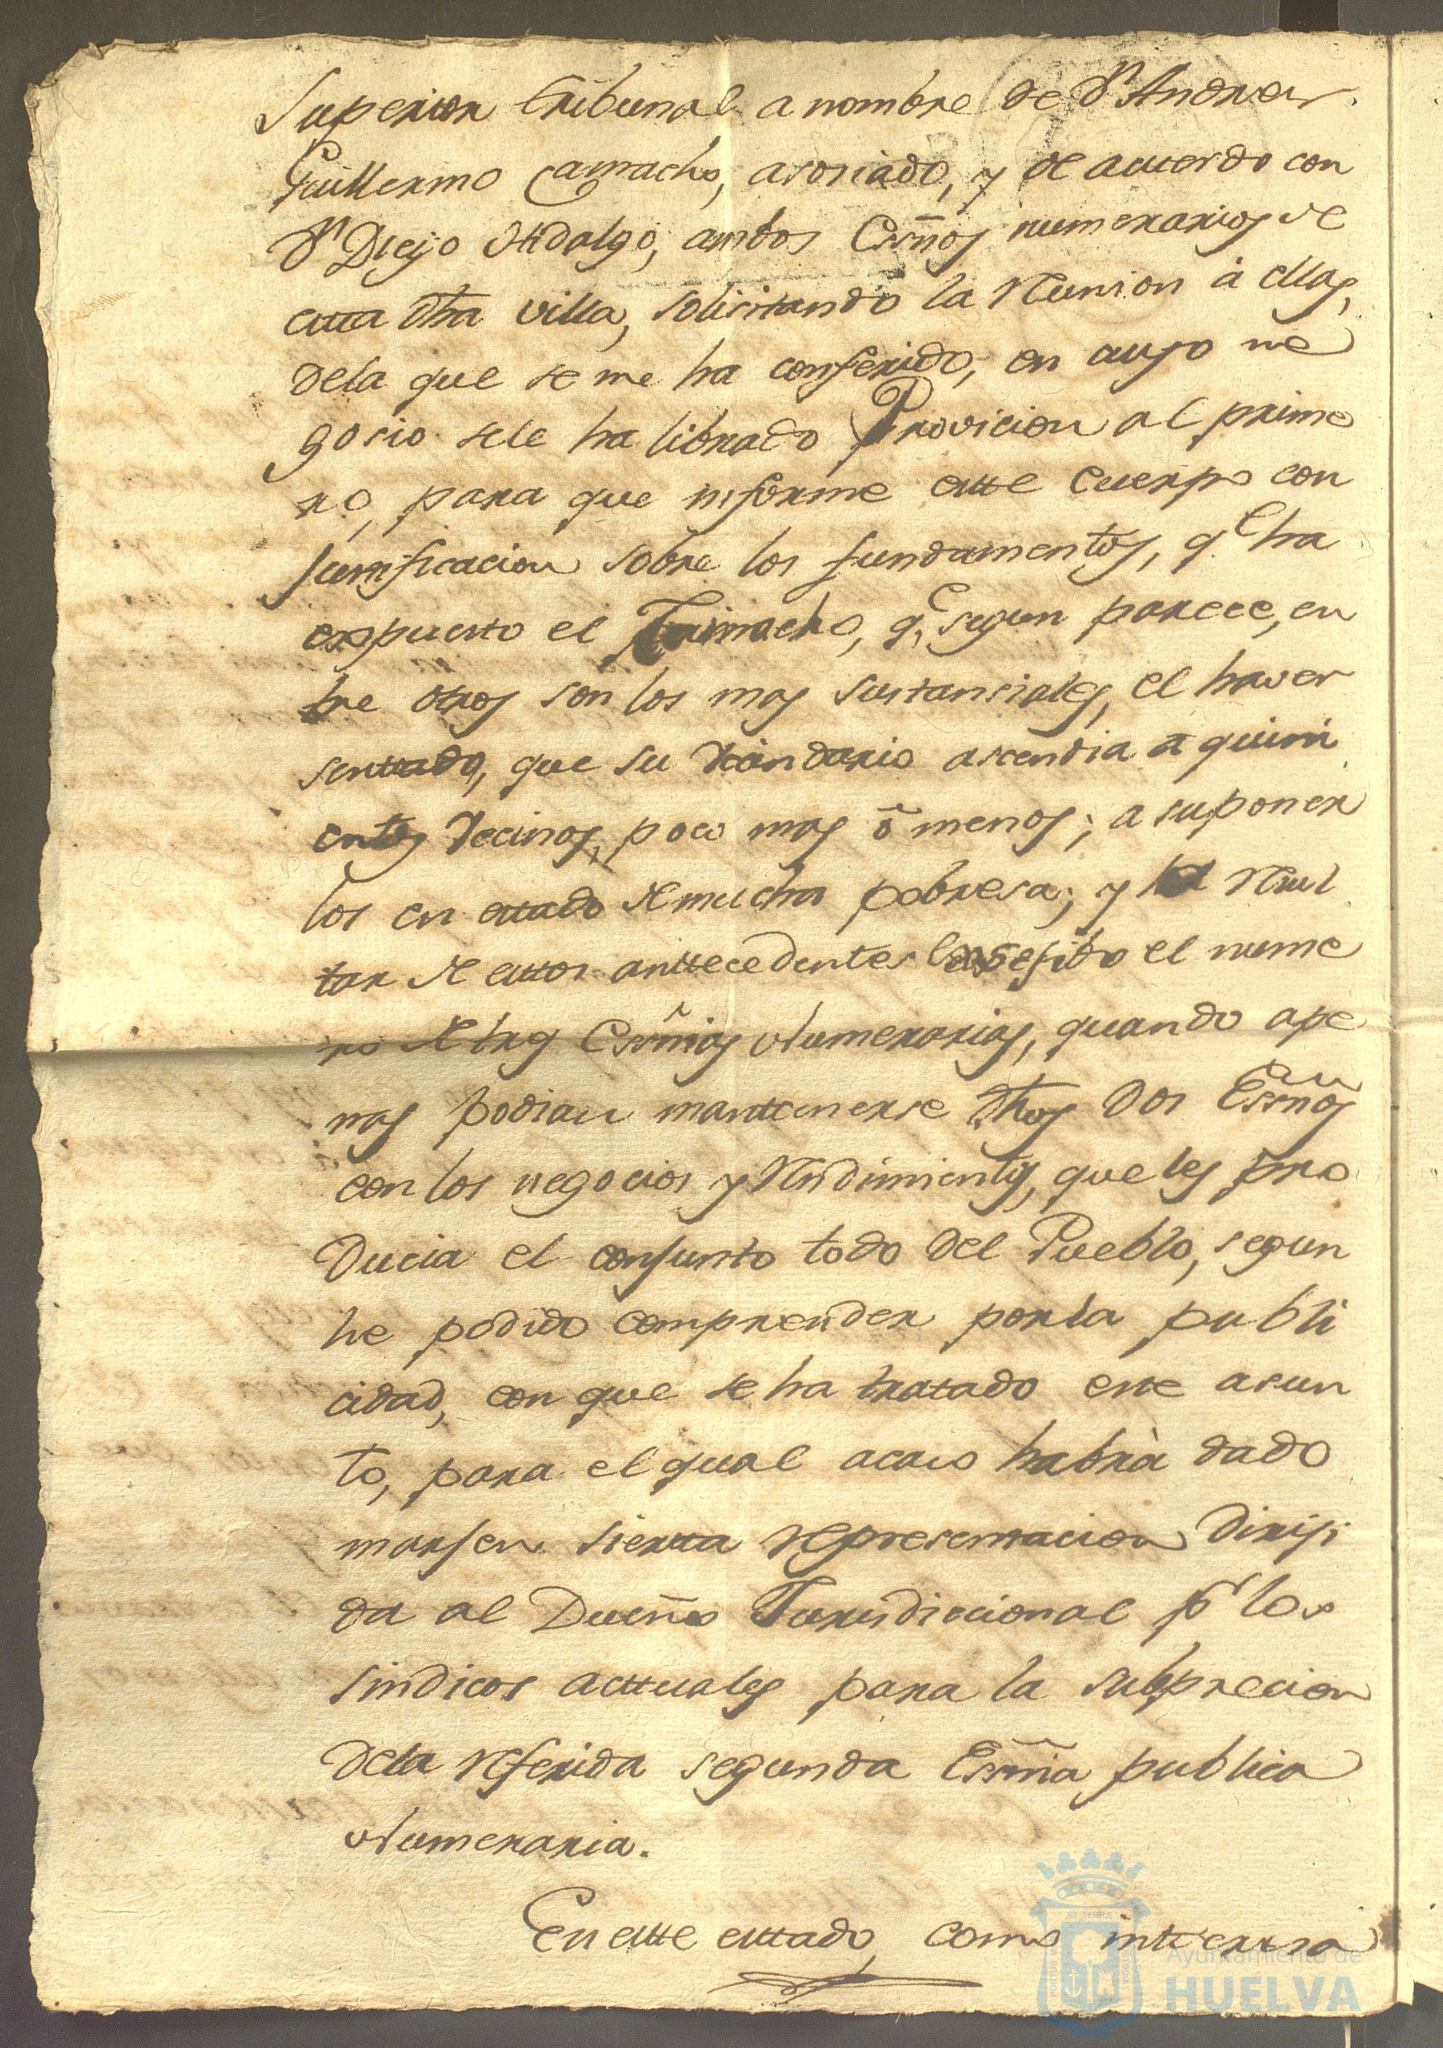 Superior tribunal a nombre de Dn. Andres
Guillermo Camacho, asosiado, y de acuerdo con
Dn. Diego Hidalgo, ambos Essños numerarios de
esta dha villa, solisitando la reunion à ellas,
dela que se me ha conferido, en cuyo ne
gosio sele ha librado Provicion al prime
ro, para que informe este cuerpo con
justificacion sobre los fundamentos, qe. ha
expuesto el Camacho, qe. segun parece, en
tre otros son los mas sustansiales, el haver
sentado, que su vesindario asendia a quini
entos vecinos, poco mas ò menos; a suponer
los en estado de mucha pobresa; y resul
tar de estos anttecedentes el nume
ro de tres Essñias Numerarias, quando ape
nas podian mantenerse dhos dos Essños
con los negocios y rendimientos, que les pro
ducia el conjunto todo del Pueblo, segun
he podido comprender por la publi
cidad, con que se ha tratado este asun
to, para el qual acaso habrà dado
marjen sierta representacion diriji
da al Dueño Jurisdiccional pr. los
sindicos acttuales para la subprecion
dela referida segunda Essñia publica
Numeraria.
En este estado, como interesa
Ayuntamiento de
HUELVA